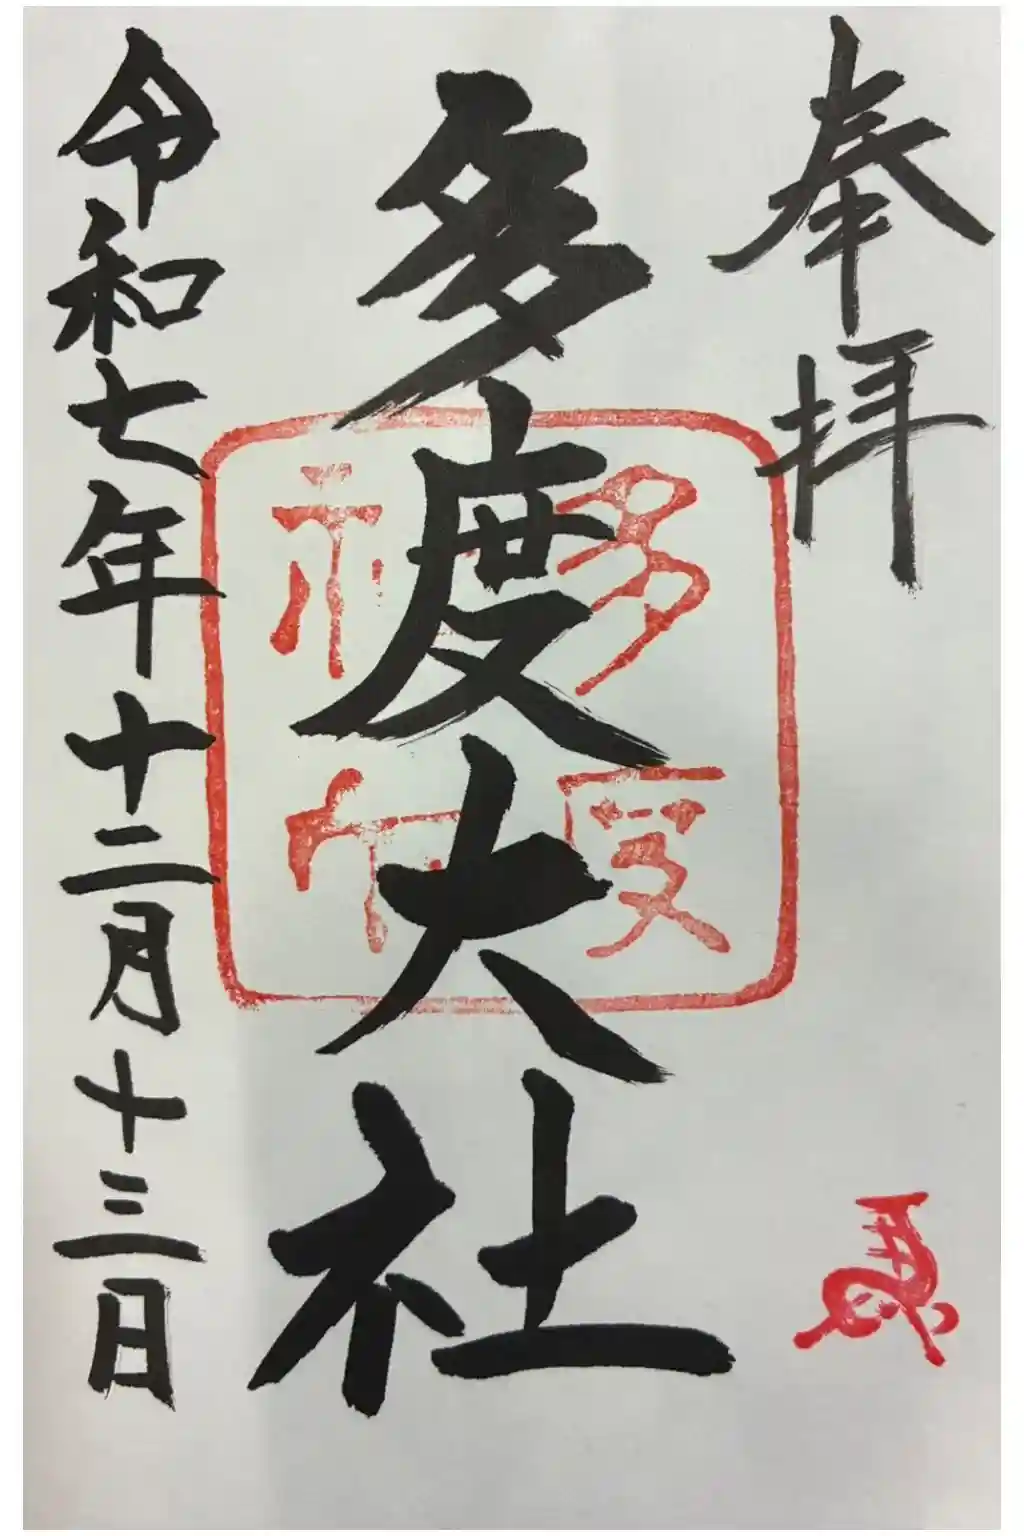 奉拝
多度大社
多度神社
令和七年十二月十三日